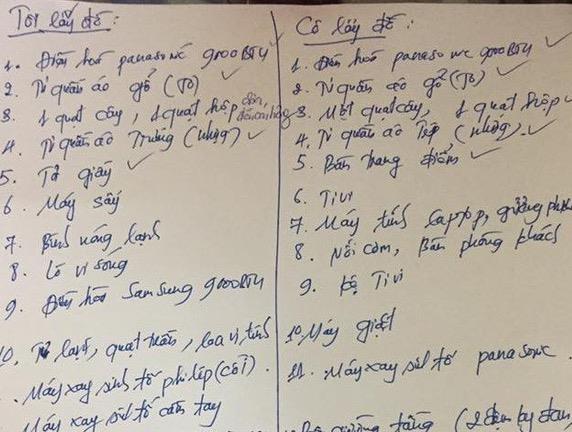 Tôi lấy đồ:
1. Điện hoá panasonic 9000BTU
2. Tủ quần áo gỗ (To)
3. 1 quạt cây, 1 quạt hộp
4. Tủ quần áo Trưởng (nhựa)
5. Tủ giầy
6. Máy sấy
7. Bình nóng lạnh
8. Lò vi sóng
9. Điện hoà Samsung 9000BTU
10, Tủ lạnh, quạt trần, loa vi tính
Máy xay sinh tố philíp (cối).
Máy xay sinh tố cầm tay
Cô lấy đồ:
1. Điện hoá panasonic 9000BTU
2. Tủ quần áo gỗ (To)
3. Một quạt cây, 1 quạt hộp
4, Tủ quần áo Tệp (nhựa)
5. Bàn trang điểm
6. Tivi
7. Máy tính laptop, giường
8. Nồi cơm, Bàn phòng khách
9. Kệ Tivi
10, Máy giặt
11. Máy xay sinh tố panasonic
giường tầng